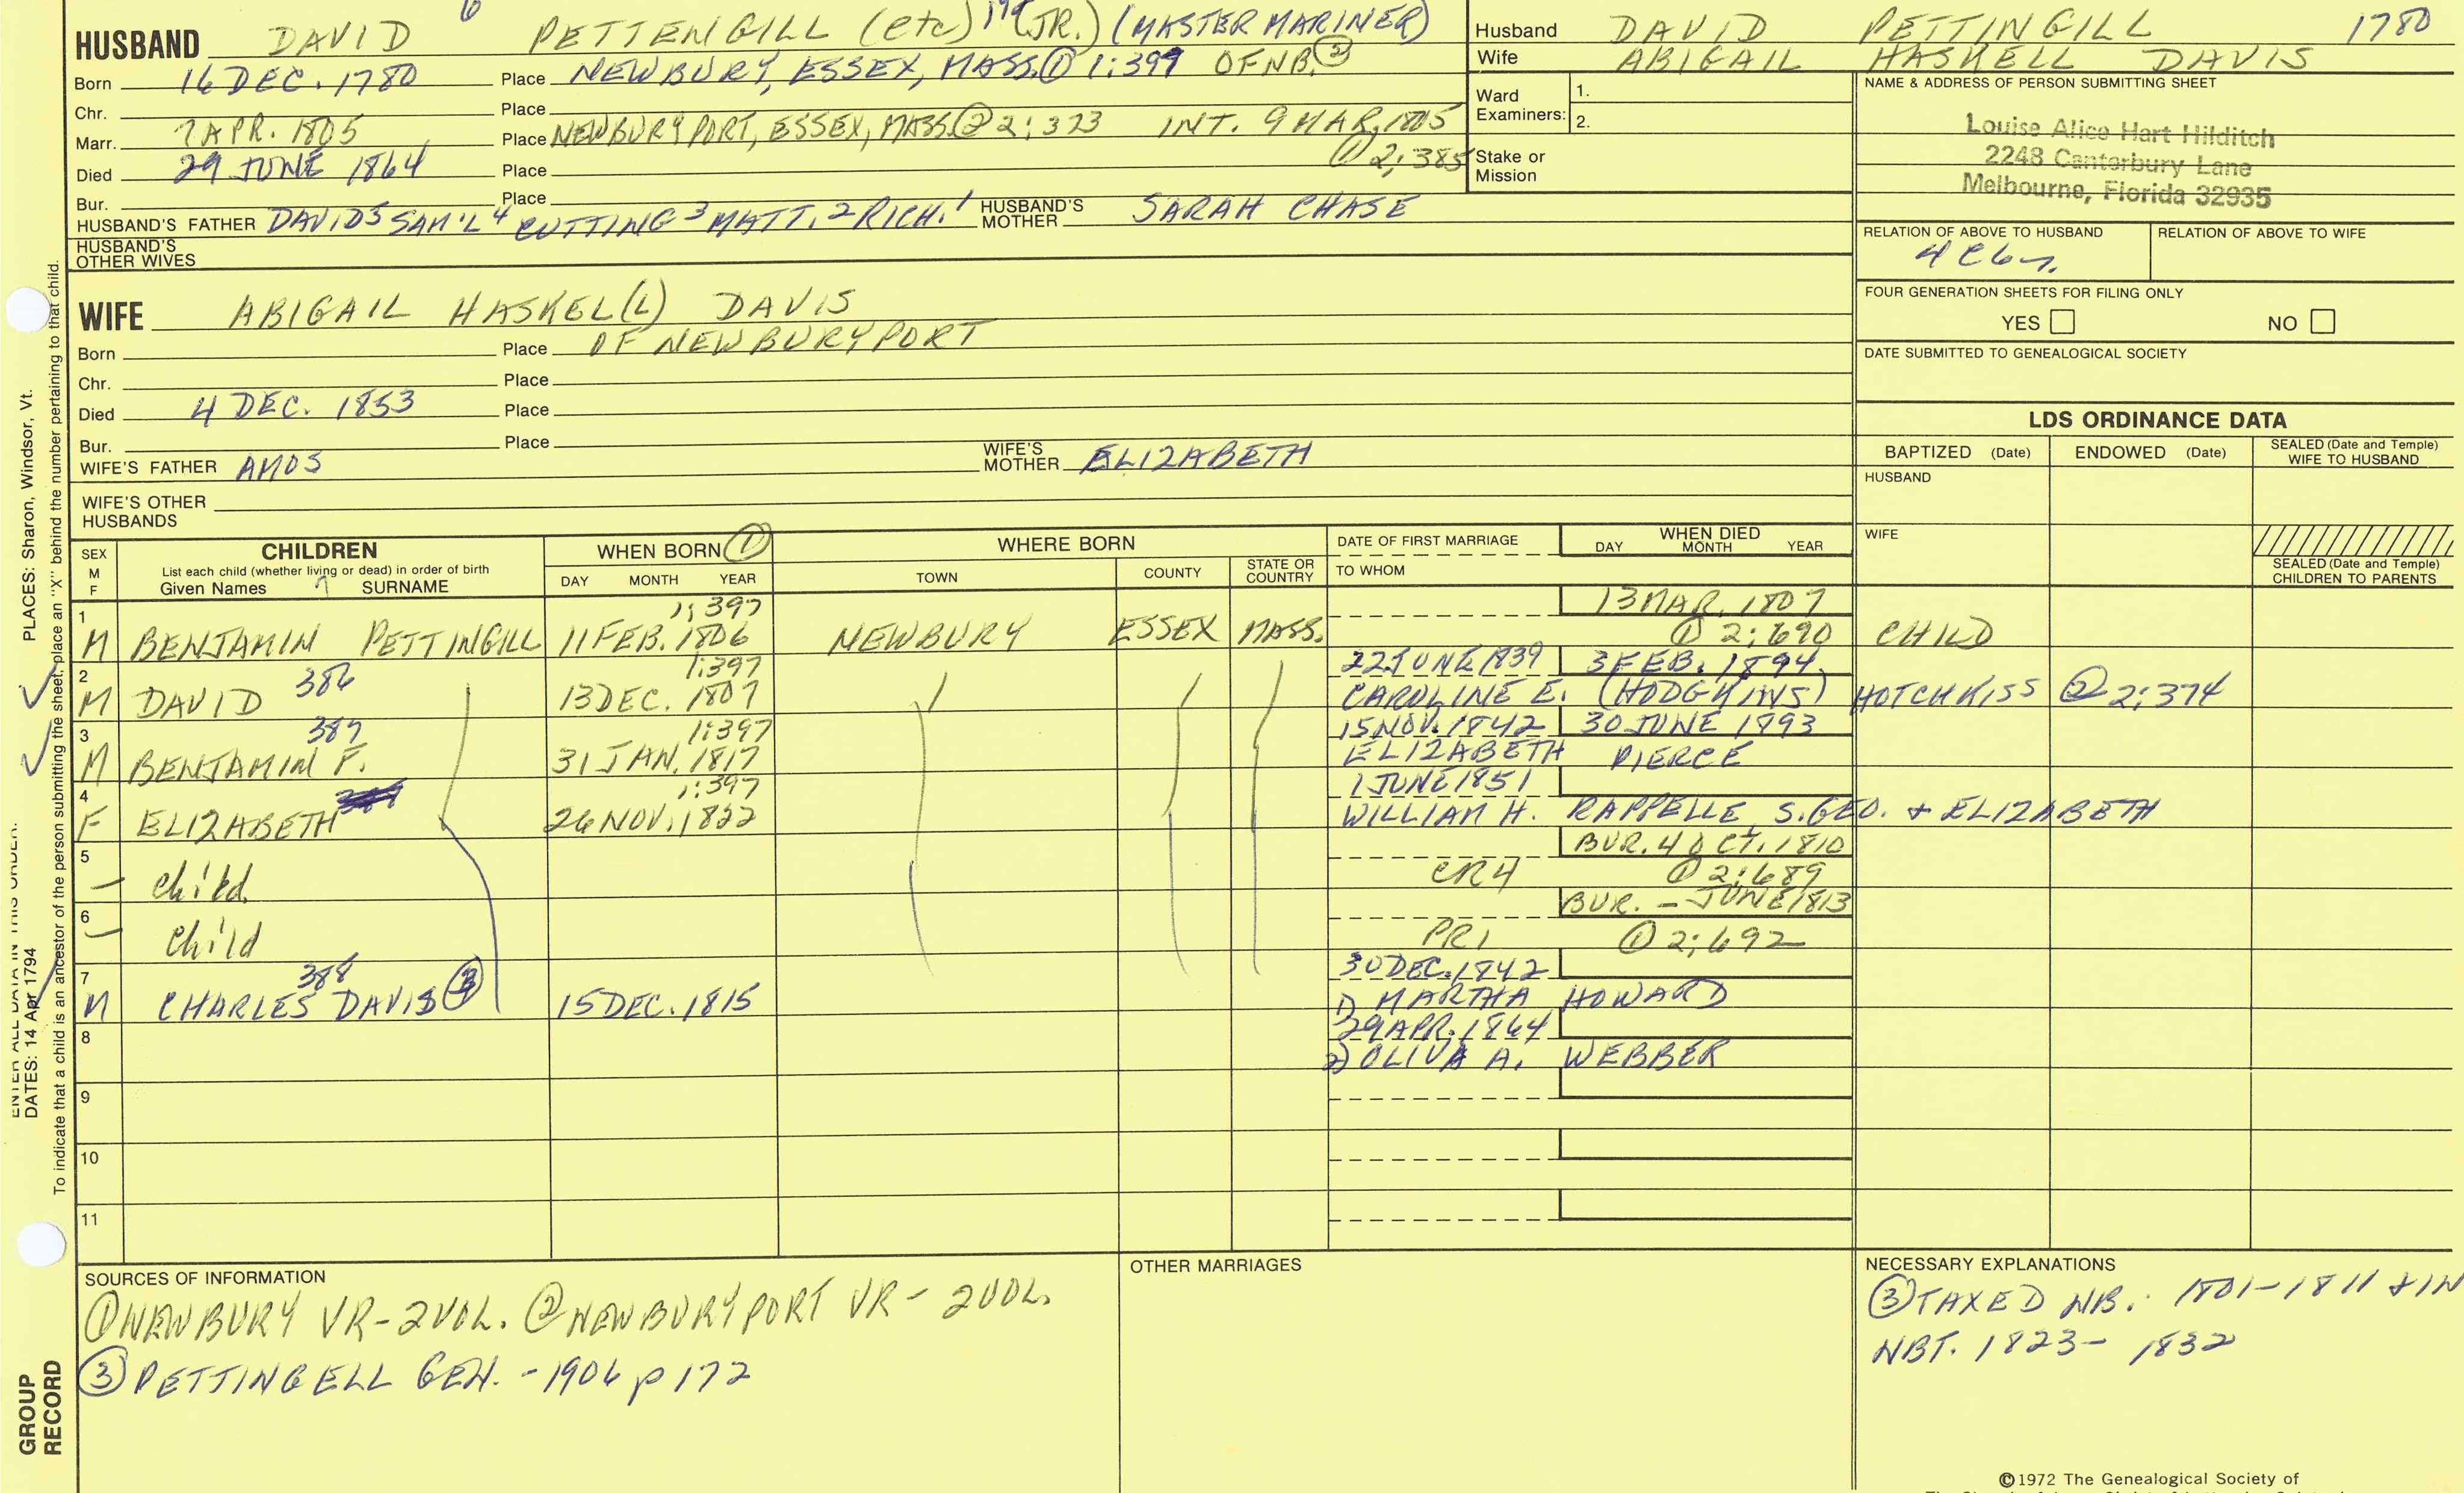 HUSBAND DAVID 6 PETTENGILL (etc) 179 (JR.) (MASTER MARINER)
Born 16 DEC. 1780 Place NEWBURY, ESSEX, MASS. ① 1:399 OF NB. ③
Chr. Place
Marr. 7 APR. 1805 Place NEWBURYPORT, ESSEX, MASS. ② 2:373 INT. 9 MAR. 1805
① 2:385
Died 29 JUNE 1864 Place
Bur. Place
HUSBAND'S FATHER DAVID 5 SAM'L 4 CUTTING 3 MATT. 2 RICH. 1 HUSBAND'S MOTHER SARAH CHASE
HUSBAND'S OTHER WIVES
WIFE ABIGAIL HASKEL(L) DAVIS
Born Place OF NEWBURYPORT
Chr. Place
Died 4 DEC. 1853 Place
Bur. Place
WIFE'S FATHER AMOS WIFE'S MOTHER ELIZABETH
WIFE'S OTHER HUSBANDS
Husband DAVID PETTINGILL 1780
Wife ABIGAIL HASKELL DAVIS
Ward Examiners: 1.
2.
Stake or Mission
NAME & ADDRESS OF PERSON SUBMITTING SHEET
Louise Alice Hart Hilditch
2248 Canterbury Lane
Melbourne, Florida 32935
RELATION OF ABOVE TO HUSBAND RELATION OF ABOVE TO WIFE
FOUR GENERATION SHEETS FOR FILING ONLY
YES NO
DATE SUBMITTED TO GENEALOGICAL SOCIETY
LDS ORDINANCE DATA
BAPTIZED (Date) ENDOWED (Date) SEALED (Date and Temple) WIFE TO HUSBAND
HUSBAND
WIFE
SEALED (Date and Temple) CHILDREN TO PARENTS
SEX M F
CHILDREN
List each child (whether living or dead) in order of birth
Given Names 7 SURNAME
WHEN BORN ①
DAY MONTH YEAR
WHERE BORN
TOWN COUNTY STATE OR COUNTRY
DATE OF FIRST MARRIAGE
TO WHOM
WHEN DIED
DAY MONTH YEAR
1:397 13 MAR. 1807
1 M BENJAMIN PETTINGILL 11 FEB. 1806 NEWBURY ESSEX MASS. ① 2:690 CHILD
386 1:397 22 JUNE 1839 3 FEB. 1894
2 M DAVID 13 DEC. 1807 CAROLINE E. (HODGKINS) HOTCHKISS ② 2:374
387 1:397 15 NOV. 1842 30 JUNE 1893
3 M BENJAMIN F. 31 JAN. 1817 ELIZABETH PIERCE
1:397 1 JUNE 1851
4 F ELIZABETH 26 NOV. 1822 WILLIAM H. RAPPELLE S. GEO. + ELIZABETH
BUR. 4 OCT. 1810
5 — Child. CR4 ① 2:689
BUR. — JUNE 1813
6 — Child PR1 ① 2:692
388 30 DEC. 1842
7 M CHARLES DAVIS ③ 15 DEC. 1815 1) MARTHA HOWARD
29 APR. 1864
8 2) OLIVA A. WEBBER
9
10
11
SOURCES OF INFORMATION
① NEWBURY VR - 2 VOL. ② NEWBURYPORT VR - 2 VOL.
③ PETTINGELL GEN. - 1906 p 172
OTHER MARRIAGES
NECESSARY EXPLANATIONS
③ TAXED NB. 1801-1811 + IN
NBT. 1823- 1832
©1972 The Genealogical Society of
PLACES: Sharon, Windsor, Vt.
To indicate that a child is an ancestor of the person submitting the sheet, place an "X" behind the number pertaining to that child.
ENTER ALL DATA IN THIS ORDER:
DATES: 14 Apr 1794
GROUP
RECORD